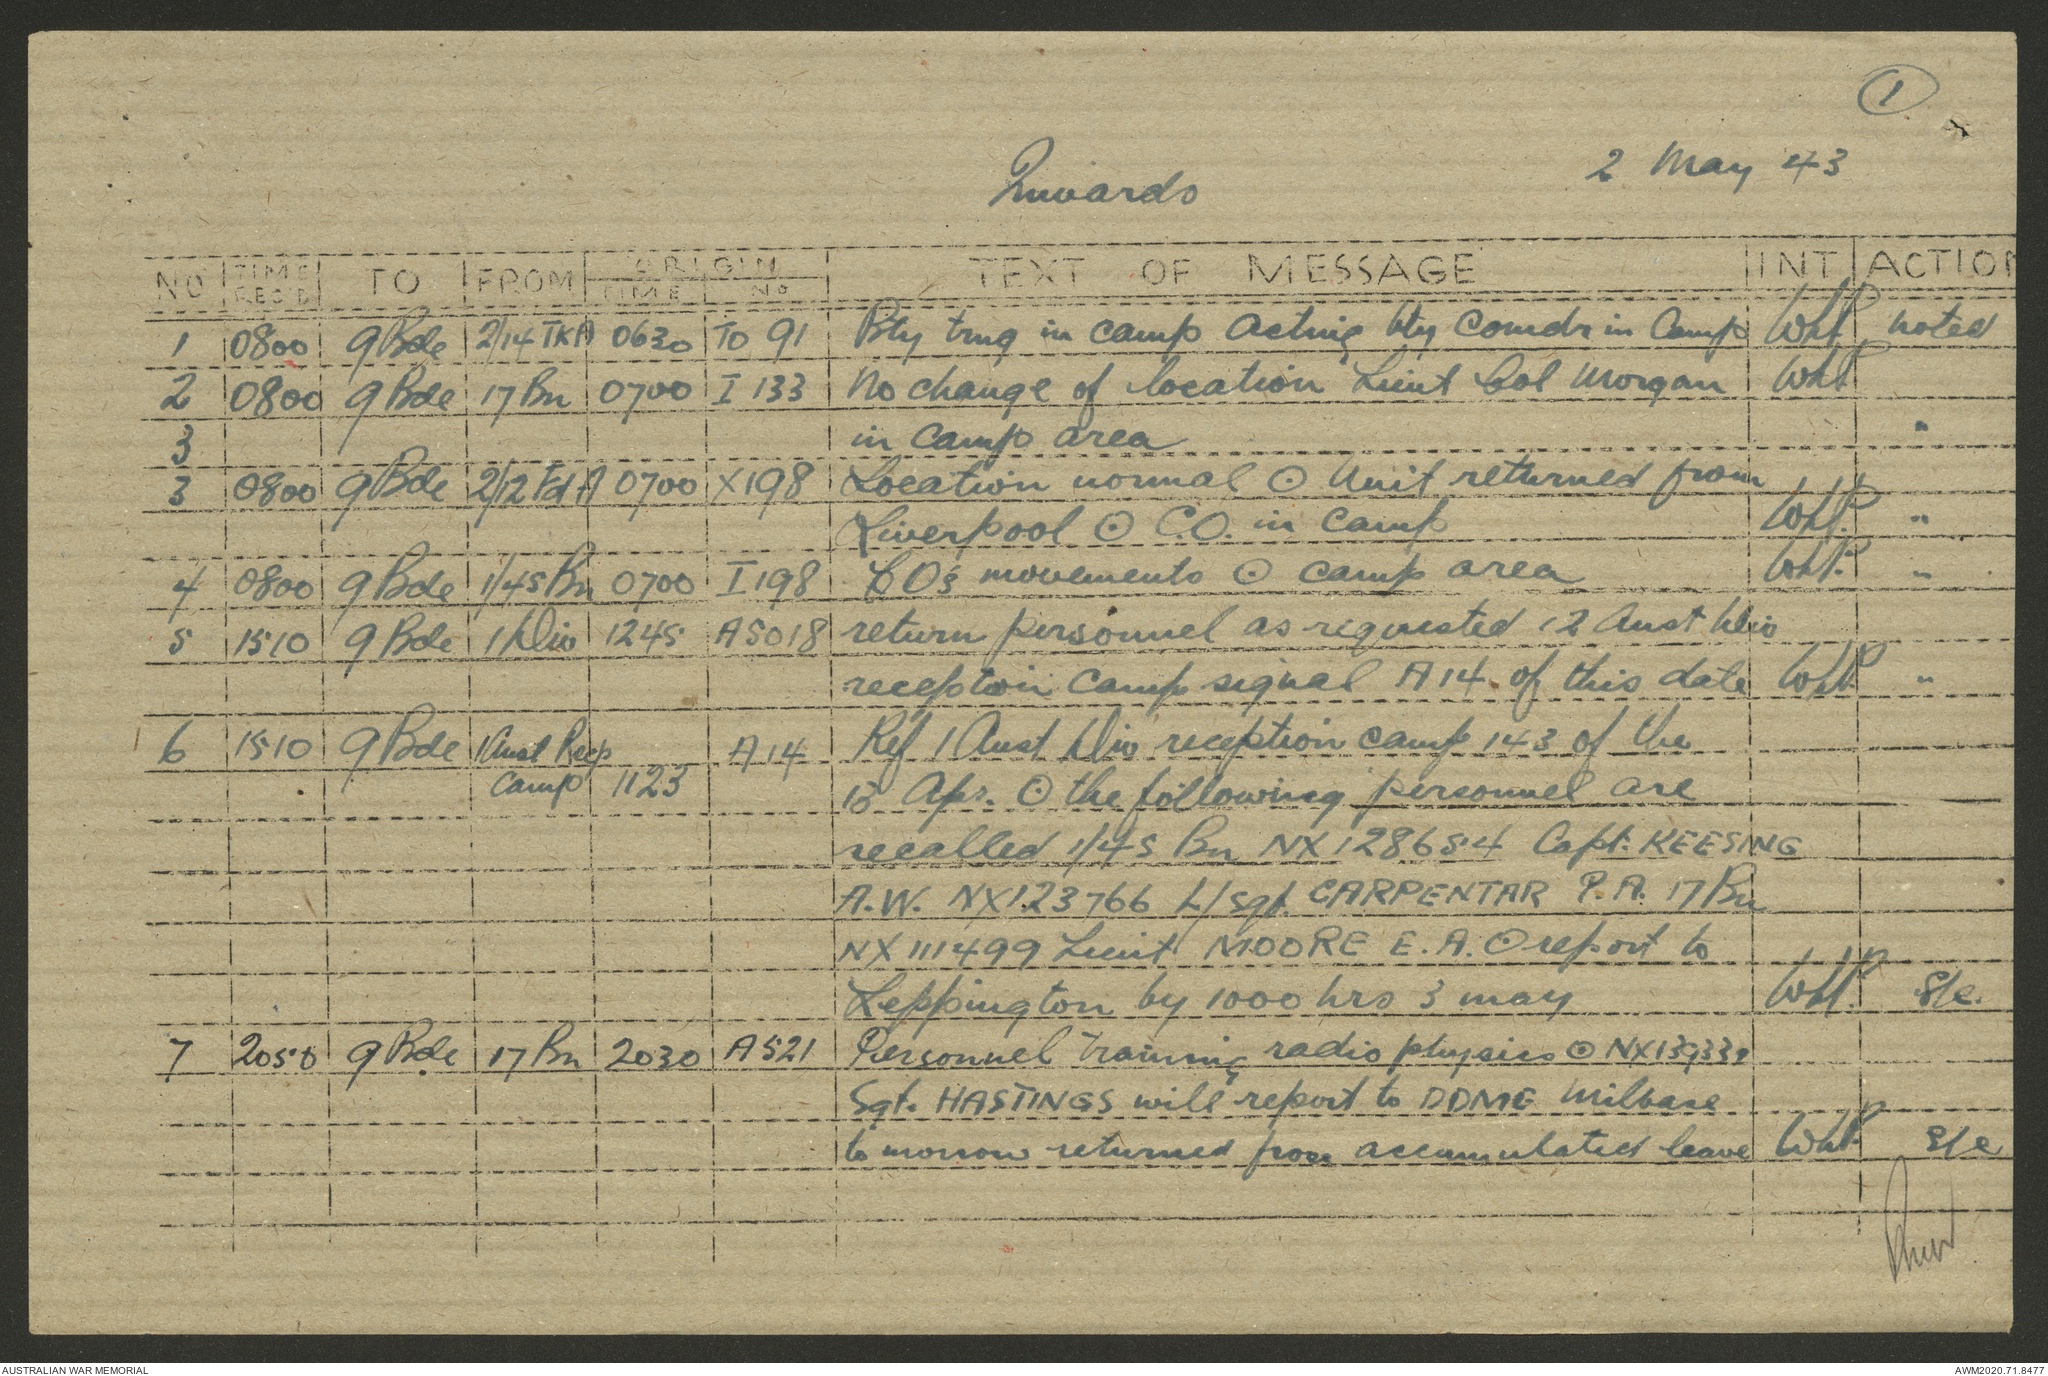 1
Inwards
2 May 43
NO TIME REC'D TO FROM ORIGIN TIME NO TEXT OF MESSAGE INT ACTION
1 0800 9 Bde 2/14 TKA 0630 TO 91 Bty trng in camp acting bty comdr in camp WHP noted
2 0800 9 Bde 17 Bn 0700 I 133 No change of location Lieut Col Morgan WHP
3 in camp area "
3 0800 9 Bde 2/12 Fd A 0700 X198 Location normal ⊙ Unit returned from
Liverpool ⊙ C.O. in camp WHP. "
4 0800 9 Bde 1/45 Bn 0700 I 198 CO's movements ⊙ camp area WHP. "
5 1510 9 Bde 1 Div 1245 A5018 return personnel as requested 12 Aust Div
reception camp signal A14 of this date WHP "
6 1510 9 Bde 1 Aust Recp A14 Ref 1 Aust Div reception camp 143 of the
camp 1123 15 Apr. ⊙ the following personnel are
recalled 1/45 Bn NX128654 Capt. KEESING
A.W. NX123766 L/Sgt. CARPENTAR P.A. 17 Bn
NX111499 Lieut MOORE E.A. ⊙ report to
Leppington by 1000 hrs 3 may WHP. S/c.
7 2050 9 Bde 17 Bn 2030 A521 Personnel Training radio physics ⊙
Sgt. HASTINGS will report to DDME Milbase
to morrow returned from accumulated leave WHP S/c
AUSTRALIAN WAR MEMORIAL
AWM2020.71.8477